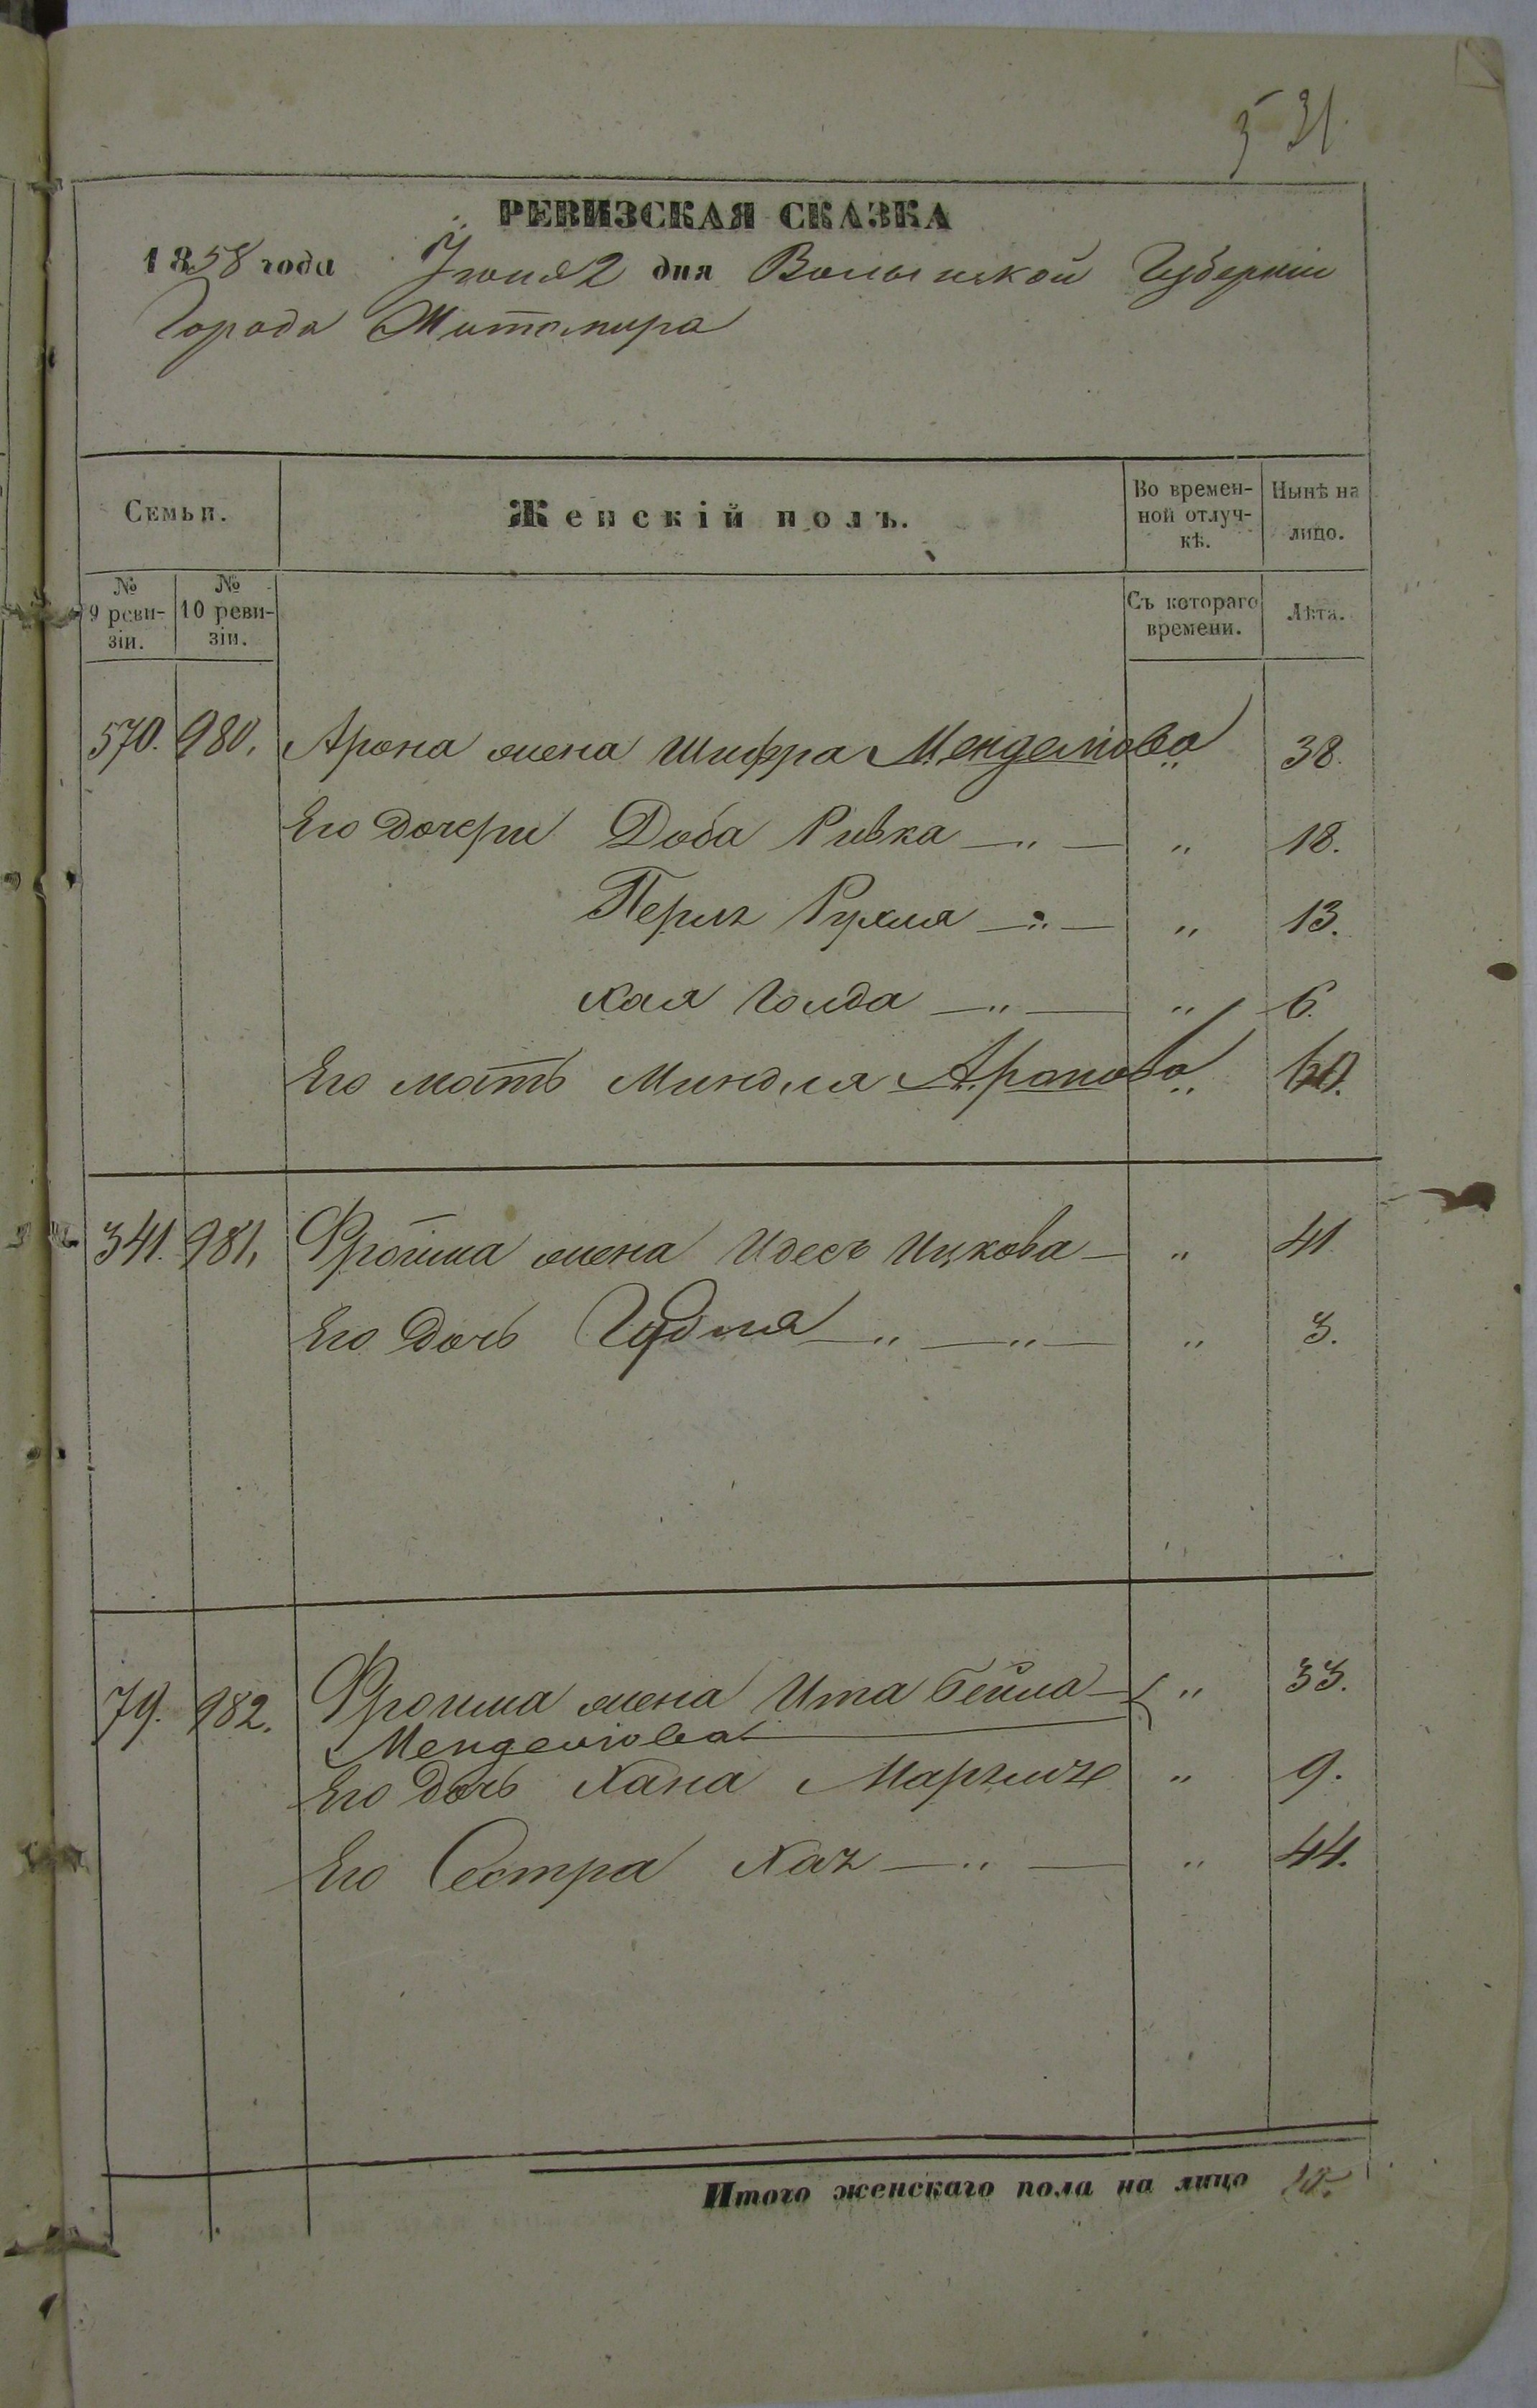 531.
РЕВИЗСКАЯ СКАЗКА
1858 года Іюня 2 дня Волынской Губерніи
Города Житомира
Семьи.
Женскій полъ.
Во времен-
ной отлуч-
кѣ.
Нынѣ на
лицо.
№
9 реви-
зіи.
№
10 реви-
зіи.
Съ котораго
времени.
Лѣта.
570. 980. Арона жена Шифра Менделіова " 38.
Его дочери Доба Ривка — " — " 18.
Перлъ Рухля — " — " 13.
Хая Голда — " — " 6.
Его мать Миндля Аронова " 60.
341. 981. Фроима жена Идесъ Ицкова — " 41
Его дочь Гудля — " — " — " 3.
79. 982. Фроима жена Ита Бейла — " 33.
Менделіова
Его дочь Хана Маръимъ " 9.
Его Сестра Хаъ — " — " 44.
Итого женскаго пола на лицо 10.